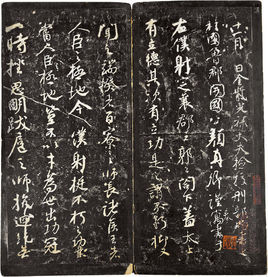 十一月日金紫光祿大夫檢校刑部尚書上
柱國魯郡開國公顏真卿謹寓書于
右僕射定襄郡王郭公閤下蓋太上
有立德其次有立功是之謂不朽抑又
聞之端揆者百寮之師長諸侯王者
人臣之極地今僕射挺不朽之功業
當人臣之極地豈不以才為世出功冠
一時挫思明跋扈之師抗迴紇無